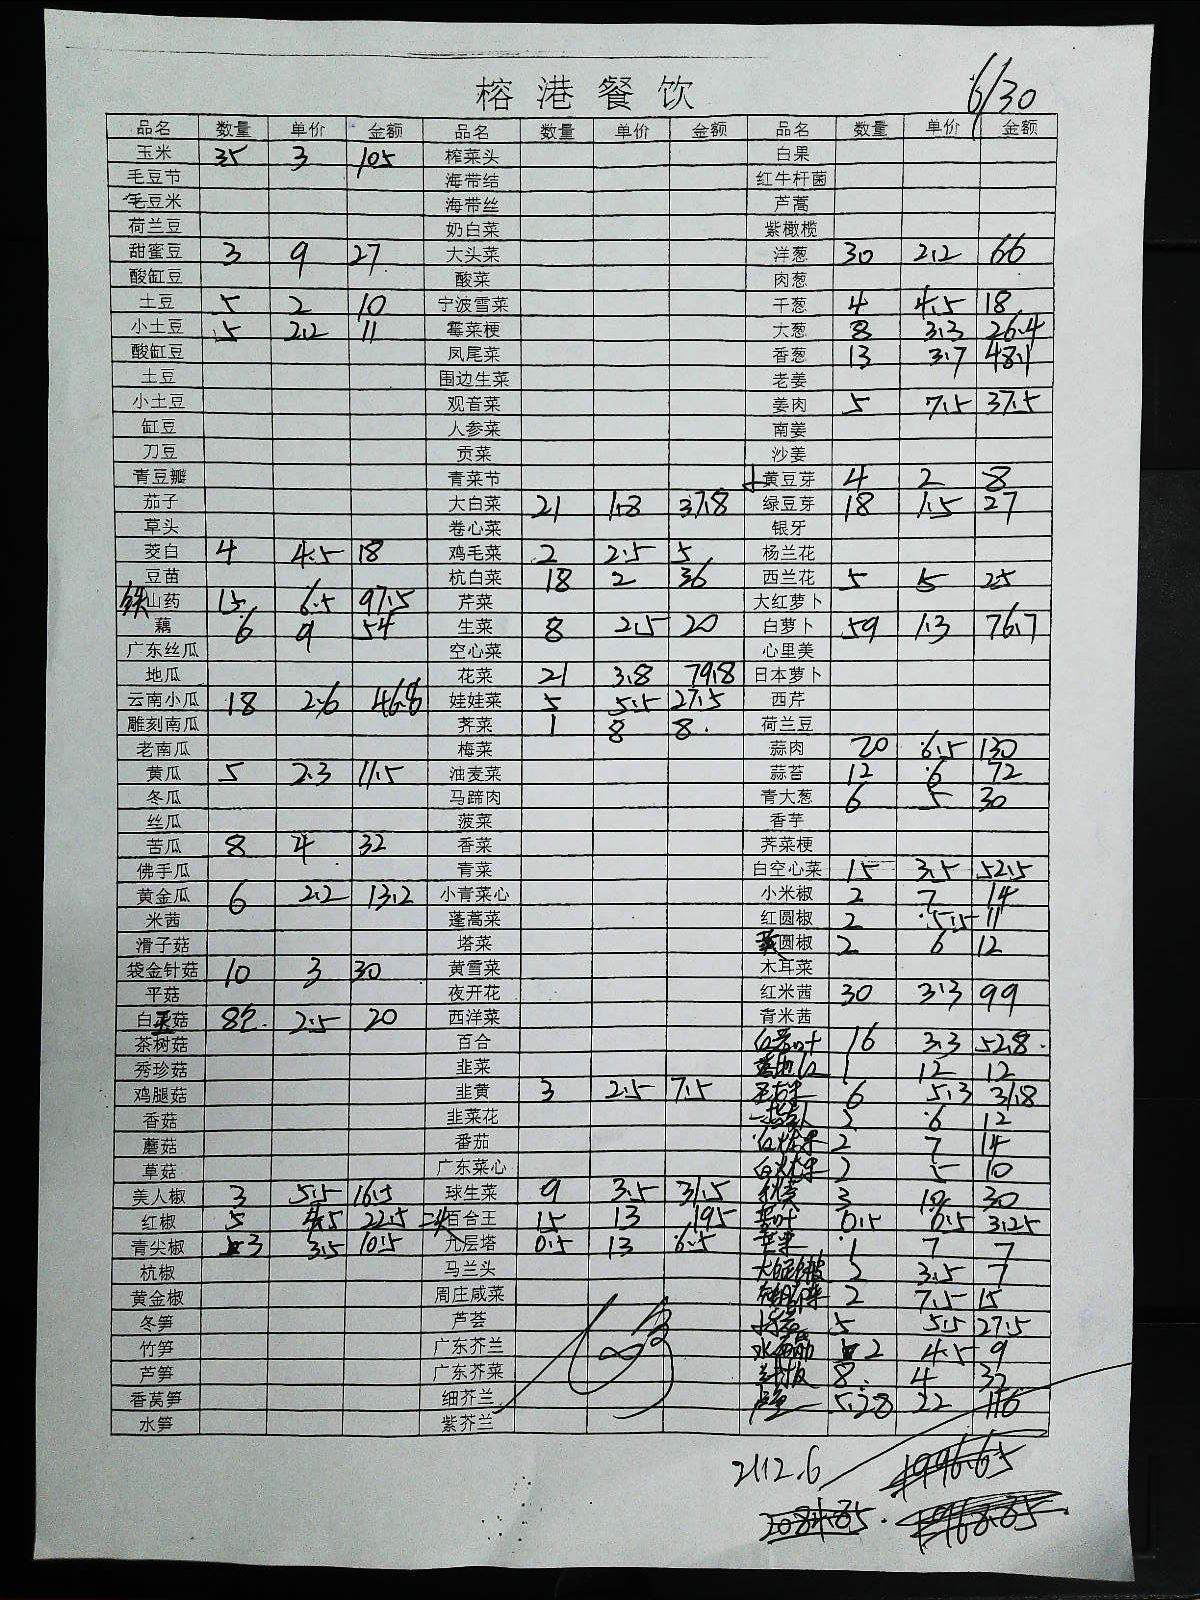 榕港餐饮 6/30
品名 数量 单价 金额 品名 数量 单价 金额 品名 数量 单价 金额
玉米 35 3 105 榨菜头 白果
毛豆节 海带结 红牛杆菌
毛豆米 海带丝 芦蒿
荷兰豆 奶白菜 紫橄榄
甜蜜豆 3 9 27 大头菜 洋葱 30 2.2 66
酸缸豆 酸菜 肉葱
土豆 5 2 10 宁波雪菜 干葱 4 4.5 18
小土豆 5 2.2 11 霉菜梗 大葱 8 3.3 26.4
酸缸豆 凤尾菜 香葱 13 3.7 48.1
土豆 围边生菜 老姜
小土豆 观音菜 姜肉 5 7.5 37.5
缸豆 人参菜 南姜
刀豆 贡菜 沙姜
青豆瓣 青菜节 黄豆芽 4 2 8
茄子 大白菜 21 1.8 37.8 绿豆芽 18 1.5 27
草头 卷心菜 银牙
茭白 4 4.5 18 鸡毛菜 2 2.5 5 杨兰花
豆苗 杭白菜 18 2 36 西兰花 5 5 25
铁山药 15 6.5 97.5 芹菜 大红萝卜
藕 6 9 54 生菜 8 2.5 20 白萝卜 59 1.3 76.7
广东丝瓜 空心菜 心里美
地瓜 花菜 21 3.8 79.8 日本萝卜
云南小瓜 18 2.6 46.8 娃娃菜 5 5.5 27.5 西芹
雕刻南瓜 荠菜 1 8 8. 荷兰豆
老南瓜 梅菜 蒜肉 20 6.5 130
黄瓜 5 2.3 11.5 油麦菜 蒜苔 12 6 72
冬瓜 马蹄肉 青大葱 6 5 30
丝瓜 菠菜 香芋
苦瓜 8 4 32 香菜 荠菜梗
佛手瓜 青菜 白空心菜 15 3.5 52.5
黄金瓜 6 2.2 13.2 小青菜心 小米椒 2 7 14
米茜 蓬蒿菜 红圆椒 2 5.5 11
滑子菇 塔菜 圆椒 2 6 12
袋金针菇 10 3 30 黄雪菜 木耳菜
平菇 夜开花 红米茜 30 3.3 99
白玉菇 8包 2.5 20 西洋菜 青米茜
茶树菇 百合 16 3.3 52.8
秀珍菇 韭菜 1 12 12
鸡腿菇 韭黄 3 2.5 7.5 6 5.3 31.8
香菇 韭菜花 2 6 12
蘑菇 番茄 2 7 14
草菇 广东菜心 2 5 10
美人椒 3 5.5 16.5 球生菜 9 3.5 31.5 3 10 30
红椒 5 4.5 22.5 二头百合王 15 13 195 0.5 6.5 3.25
青尖椒 3 3.5 10.5 九层塔 0.5 13 6.5 苹果 1 7 7
杭椒 马兰头 2 3.5 7
黄金椒 周庄咸菜 2 7.5 15
冬笋 芦荟 5 5.5 27.5
竹笋 广东芥兰 2 4.5 9
芦笋 广东芥菜 8 4 32
香莴笋 细芥兰 5.28 22 116
水笋 紫芥兰
2112.6 1996.65
2084.85 1968.85